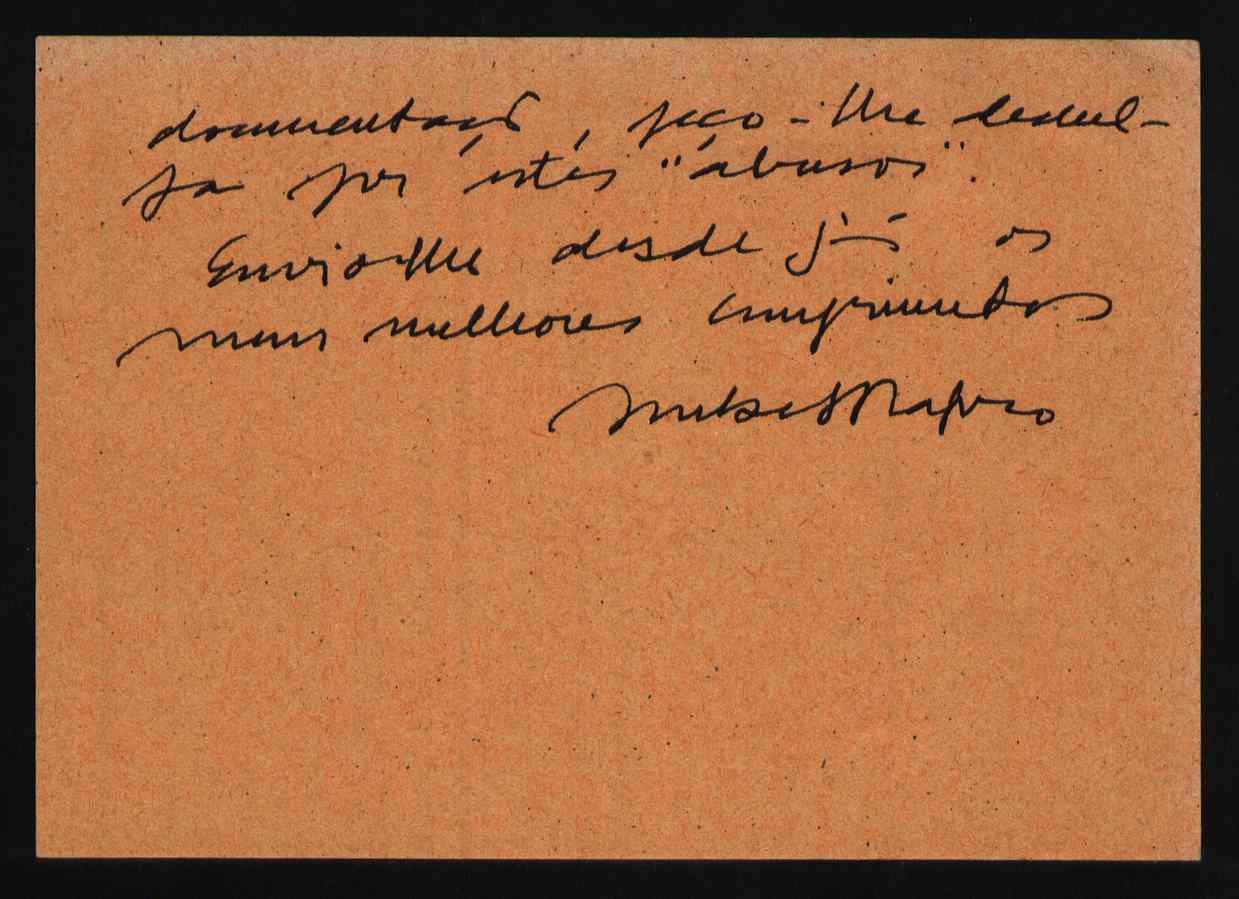 documentação, peço-lhe descul-
pa por estes "abusos".
Envio-lhe desde já os
meus melhores cumprimentos